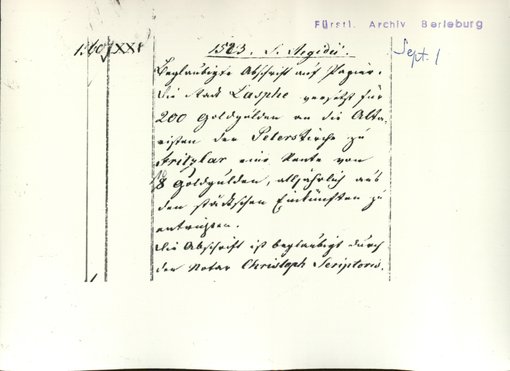 Fürstl. Archiv Berleburg
Sept. 1
1523. S. Aegidii.
Beglaubigte Abschrift auf Papier.
Die Stadt Lasphe versetzt für
200 Goldgülden an die Alta-
risten der Peterskirche zu
Fritzlar eine Rente von
8 Goldgülden, alljährlich aus
den städtschen Einkünften zu
entrichten.
Die Abschrift ist beglaubigt durch
den Notar Christoph Scriptoris.